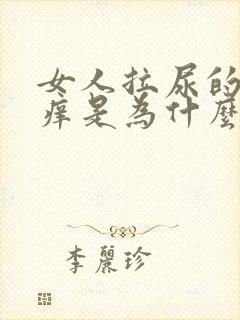 女人拉尿的
痒是為什麼
李麗珍